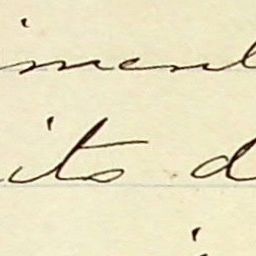 iment
its d